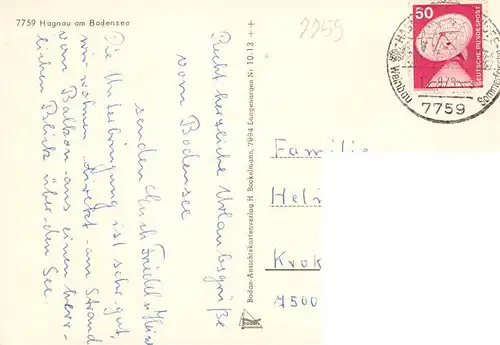 7759 Hagnau am Bodensee
7759
Recht herzliche Urlaubsgrüße
vom Bodensee
senden Euch Friedl u.
Die Unterbringung ist sehr gut,
wir wohnen direkt am Strand
vom Balkon aus einen herr-
lichen Blick über den See.
Bodan-Ansichtskartenverlag H. Bockelmann, 7994 Langenargen Nr. 10-13 ++
bodan
50
DEUTSCHE BUNDESPOST
7759
Familie
Hel
Krok
7500